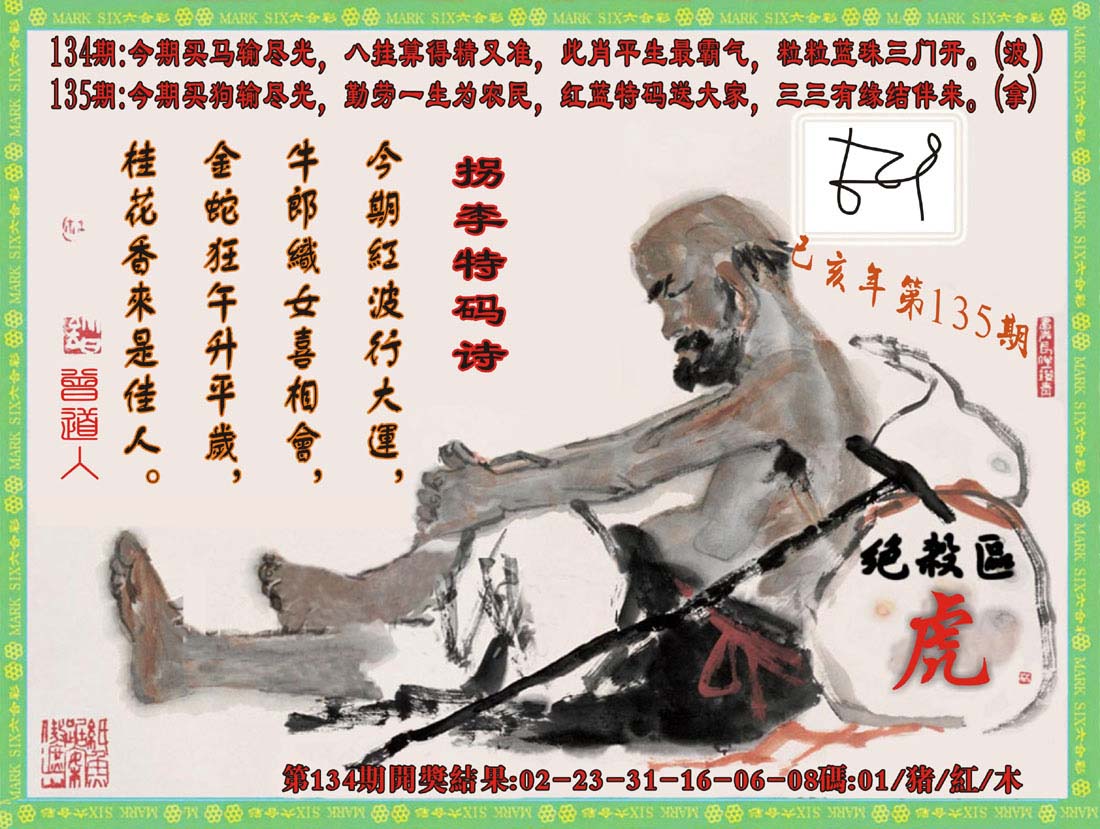 MARK SIX六合彩
134期:今期买马输尽光，八挂算得精又准，此肖平生最霸气，粒粒蓝珠三门开。(波)
135期:今期买狗输尽光，勤劳一生为农民，红蓝特码送大家，三三有缘结伴来。(拿)
拐李特码诗
今期紅波行大運，
牛郎織女喜相會，
金蛇狂午升平歲，
桂花香來是佳人。
曾道人
己亥年第135期
绝殺區
虎
第134期開獎結果:02-23-31-16-06-08碼:01/猪/紅/木